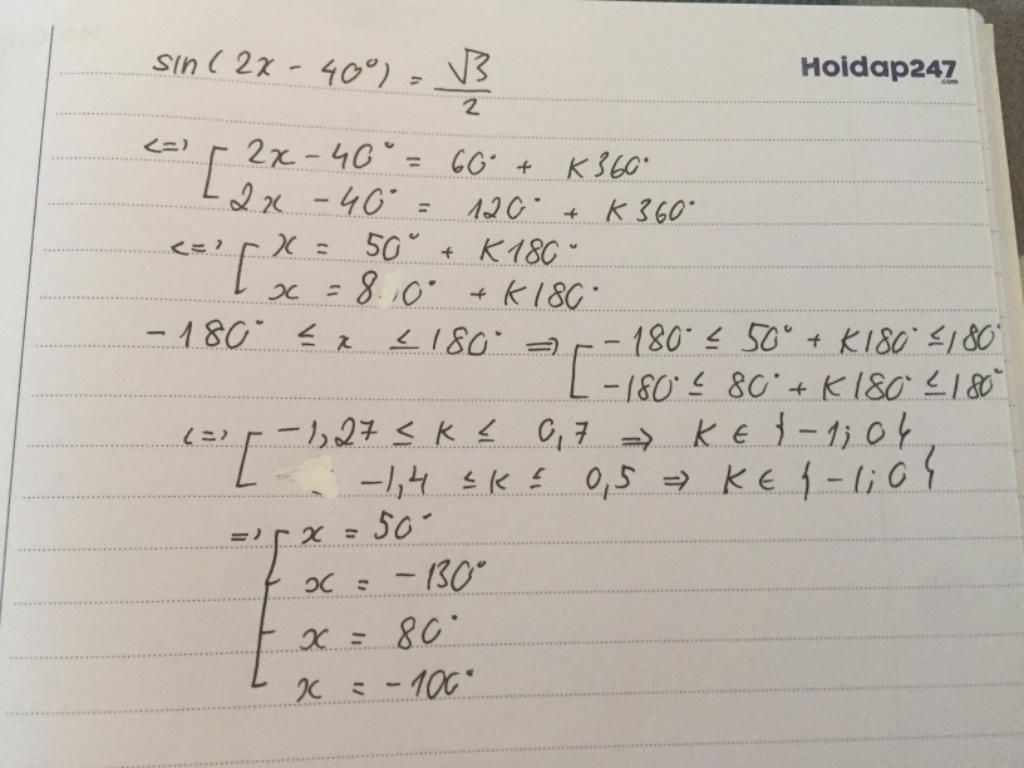 sin(2x - 40°) = √3/2
Hoidap247
.com
<=> [ 2x - 40° = 60° + K360°
2x - 40° = 120° + K360°
<=> [ x = 50° + K180°
x = 80° + K180°
-180° ≤ x ≤ 180° => [ -180° ≤ 50° + K180° ≤ 180°
-180° ≤ 80° + K180° ≤ 180°
<=> [ -1,27 ≤ K ≤ 0,7 => K ∈ {-1; 0}
-1,4 ≤ K ≤ 0,5 => K ∈ {-1; 0}
=> [ x = 50°
x = -130°
x = 80°
x = -100°